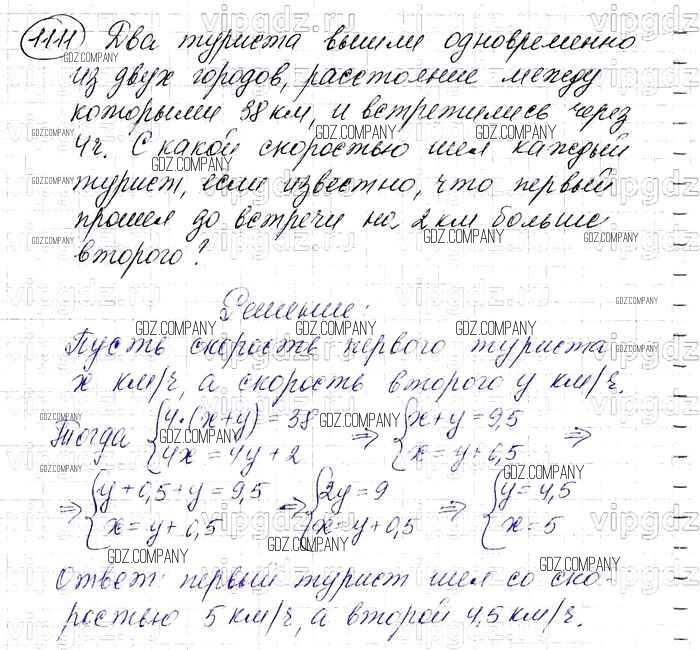 1111 Два туриста вышли одновременно
из двух городов, расстояние между
которыми 38 км, и встретились через
4 ч. С какой скоростью шел каждый
турист, если известно, что первый
прошел до встречи на 2 км больше
второго?
Решение:
Пусть скорость первого туриста
x км/ч, а скорость второго y км/ч.
Тогда { 4·(x+y) = 38 ⇒ { x+y = 9,5 ⇒
4x = 4y + 2 x = y + 0,5
⇒ { y + 0,5 + y = 9,5 ⇒ { 2y = 9 ⇒ { y = 4,5
x = y + 0,5 x = y + 0,5 x = 5
Ответ: первый турист шел со ско-
ростью 5 км/ч, а второй 4,5 км/ч.
GDZ.COMPANY
vipgdz.ru